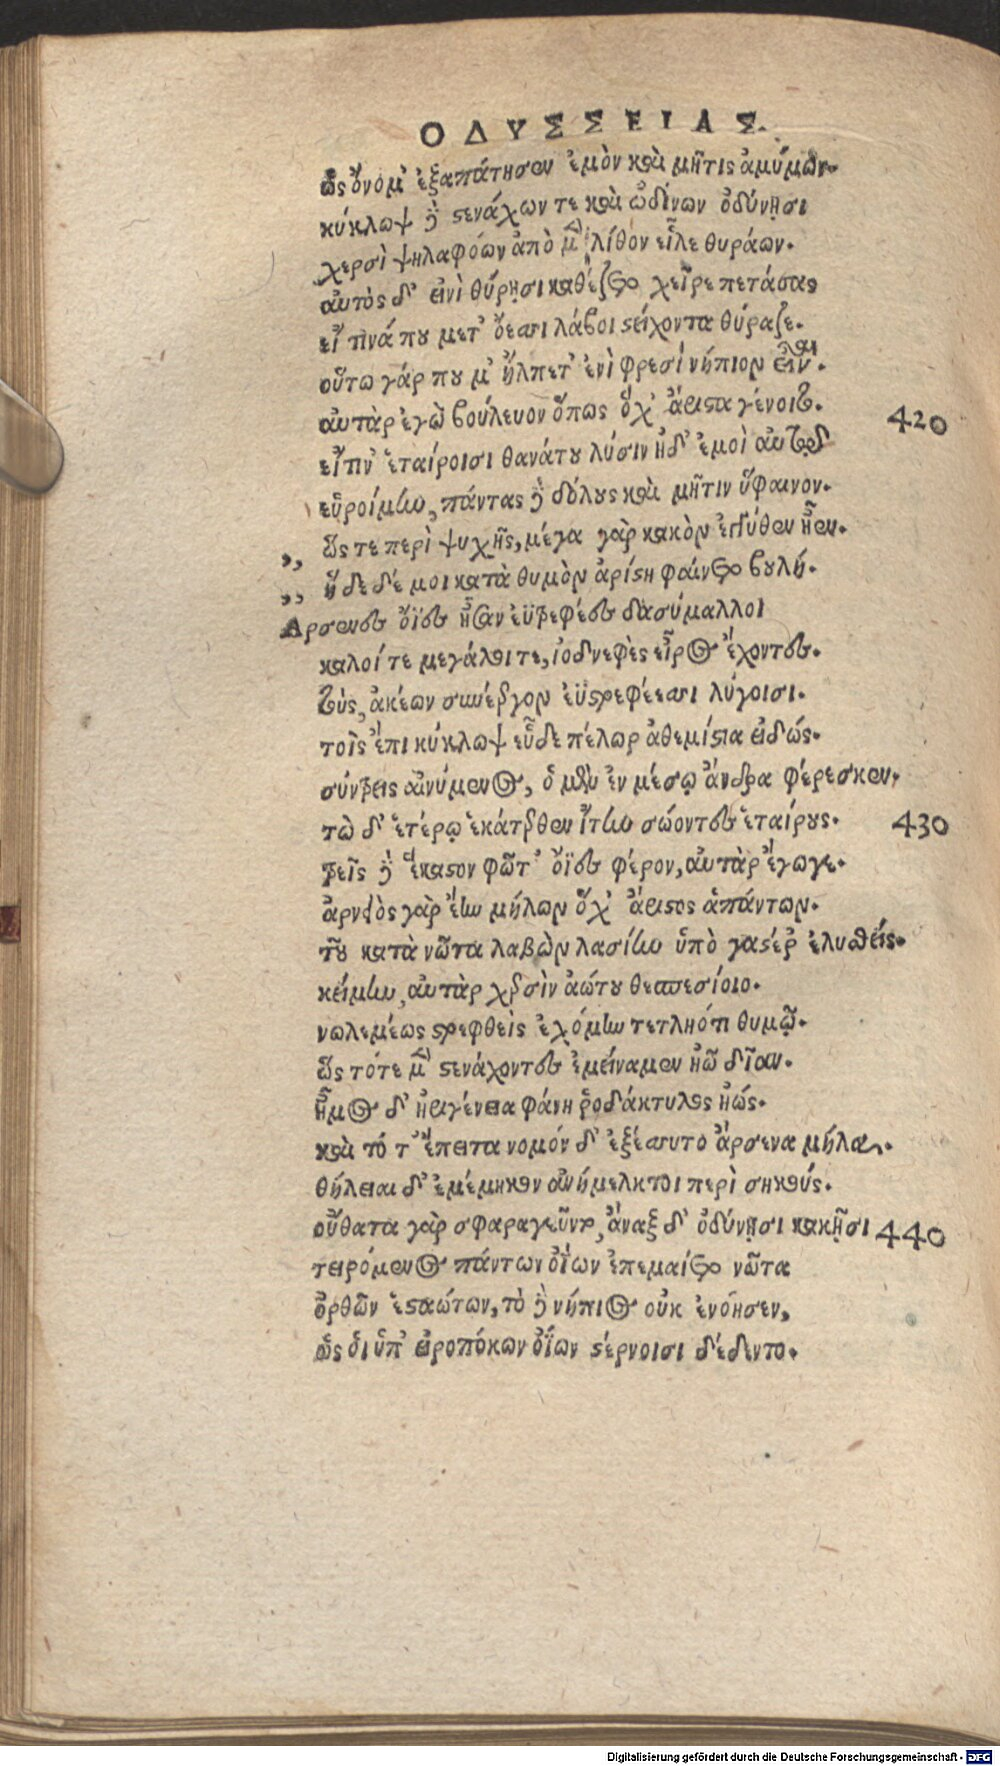 ΟΔΥΣΣΕΙΑΣ.
ὣς ὄνομ' ἐξαπάτησεν ἐμὸν καὶ μῆτις ἀμύμων.
κύκλωψ δὲ στενάχων τε καὶ ὠδίνων ὀδύνῃσι
χερσὶ ψηλαφόων ἀπὸ μὲν λίθον εἷλε θυράων.
αὐτὸς δ' εἰνὶ θύρῃσι καθέζετο χεῖρε πετάσας
εἴ τινά που μετ' ὄεσσι λάβοι στείχοντα θύραζε.
οὕτω γάρ που μ' ἤλπετ' ἐνὶ φρεσὶ νήπιον εἶναι.
αὐτὰρ ἐγὼ βούλευον ὅπως ὄχ' ἄριστα γένοιτο. 420
εἴ τιν' ἑταίροισι θανάτου λύσιν ἠδ' ἐμοὶ αὐτῷ
εὑροίμην, πάντας δὲ δόλους καὶ μῆτιν ὕφαινον.
,, ὥς τε περὶ ψυχῆς, μέγα γὰρ κακὸν ἐγγύθεν ἦεν.
,, ἥδε δέ μοι κατὰ θυμὸν ἀρίστη φαίνετο βουλή.
Αρσενες ὄϊες ἦσαν ἐϋτρεφέες δασύμαλλοι
καλοί τε μεγάλοι τε, ἰοδνεφὲς εἶρος ἔχοντες.
τοὺς ἀκέων συνέεργον ἐϋστρεφέεσσι λύγοισι.
τοῖς ἔπι κύκλωψ εὗδε πέλωρ ἀθεμίστια εἰδώς.
σύντρεις αἰνύμενος, ὁ μὲν ἐν μέσῳ ἄνδρα φέρεσκεν.
τὼ δ' ἑτέρῳ ἑκάτερθεν ἴτην σώοντες ἑταίρους. 430
τρεῖς δὲ ἕκαστον φῶτ' ὄϊες φέρον, αὐτὰρ ἔγωγε.
ἀρνειὸς γὰρ ἔην μήλων ὄχ' ἄριστος ἁπάντων.
τοῦ κατὰ νῶτα λαβὼν λασίην ὑπὸ γαστέρ' ἐλυσθείς.
κείμην, αὐτὰρ χερσὶν ἀώτου θεσπεσίοιο.
νωλεμέως στρεφθεὶς ἐχόμην τετληότι θυμῷ.
ὣς τότε μὲν στενάχοντες ἐμείναμεν ἠῶ δῖαν.
ἦμος δ' ἠριγένεια φάνη ῥοδάκτυλος ἠώς.
καὶ τότ' ἔπειτα νομόν δ' ἐξέσσυτο ἄρσενα μῆλα.
θήλειαι δ' ἐμέμηκον ἀνήμελκτοι περὶ σηκούς.
οὔθατα γὰρ σφαραγεῦντο, ἄναξ δ' ὀδύνῃσι κακῇσι 440
τειρόμενος πάντων ὀΐων ἐπεμαίετο νῶτα
ὀρθῶν ἑσταώτων, τὸ δὲ νήπιος οὐκ ἐνόησεν,
ὥς οἱ ὑπ' εἰροπόκων ὀΐων στέρνοισι δέδεντο.
Digitalisierung gefördert durch die Deutsche Forschungsgemeinschaft - DFG